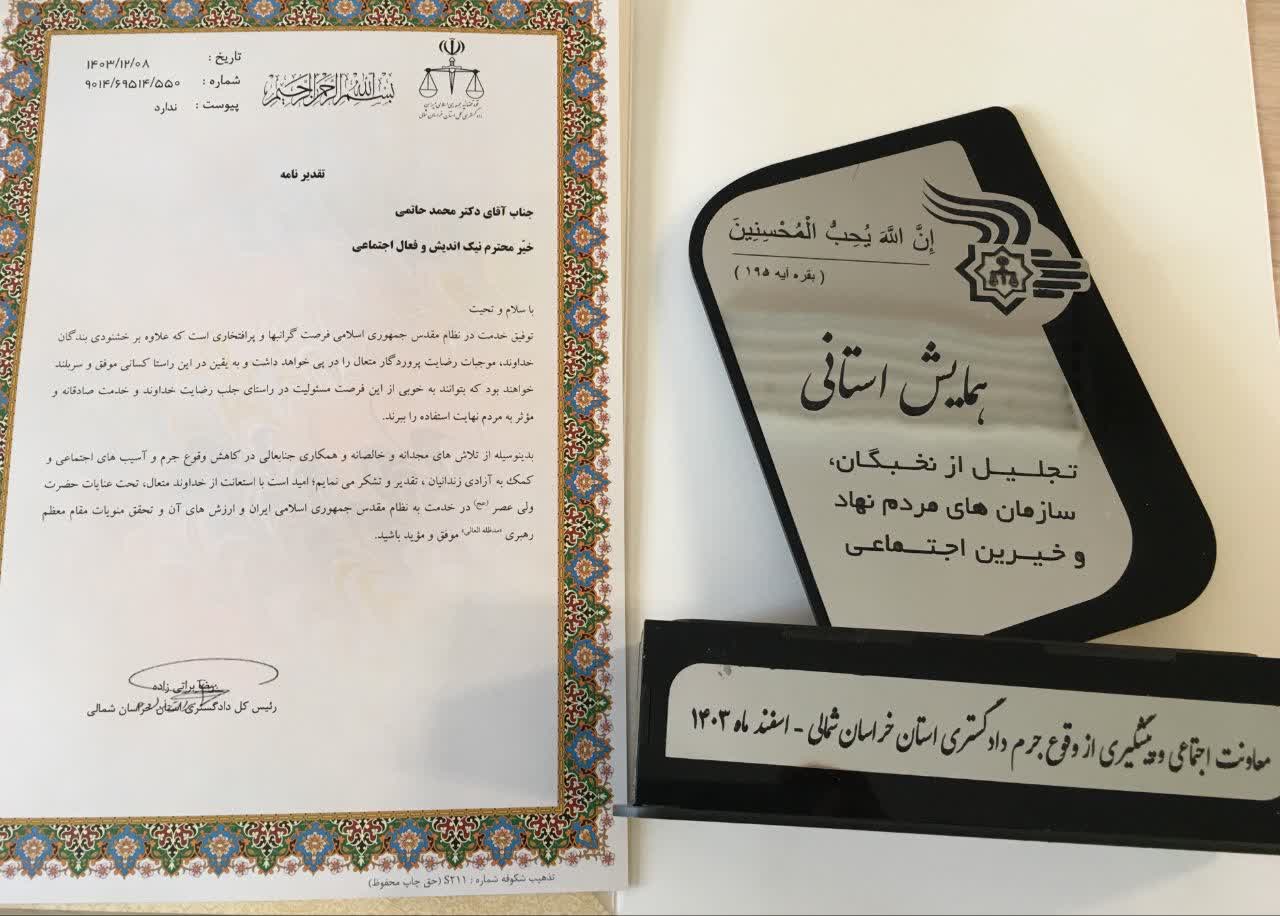 تاریخ : ۱۴۰۳/۱۲/۰۸
شماره : ۹۰۱۴/۶۹۵۱۴/۵۵۰
پیوست : ندارد
بسم الله الرحمن الرحیم
قوه قضائیه جمهوری اسلامی ایران
دادگستری کل استان خراسان شمالی
تقدیر نامه
جناب آقای دکتر محمد حاتمی
خیّر محترم نیک اندیش و فعال اجتماعی
با سلام و تحیت
توفیق خدمت در نظام مقدس جمهوری اسلامی فرصت گرانبها و پرافتخاری است که علاوه بر خشنودی بندگان
خداوند، موجبات رضایت پروردگار متعال را در پی خواهد داشت و به یقین در این راستا کسانی موفق و سربلند
خواهند بود که بتوانند به خوبی از این فرصت مسئولیت در راستای جلب رضایت خداوند و خدمت صادقانه و
مؤثر به مردم نهایت استفاده را ببرند.
بدینوسیله از تلاش های مجدانه و خالصانه و همکاری جنابعالی در کاهش وقوع جرم و آسیب های اجتماعی و
کمک به آزادی زندانیان ، تقدیر و تشکر می نمایم؛ امید است با استعانت از خداوند متعال، تحت عنایات حضرت
ولی عصر (عج) در خدمت به نظام مقدس جمهوری اسلامی ایران و ارزش های آن و تحقق منویات مقام معظم
رهبری «مدظله العالی» موفق و مؤید باشید.
رضا براتی زاده
رئیس کل دادگستری استان خراسان شمالی
تذهیب شکوفه شماره : S۲۱۱ (حق چاپ محفوظ)
إِنَّ اللَّهَ يُحِبُّ الْمُحْسِنِينَ
( بقره آیه ۱۹۵ )
همایش استانی
تجلیل از نخبگان،
سازمان های مردم نهاد
و خیرین اجتماعی
معاونت اجتماعی و پیشگیری از وقوع جرم دادگستری استان خراسان شمالی - اسفند ماه ۱۴۰۳